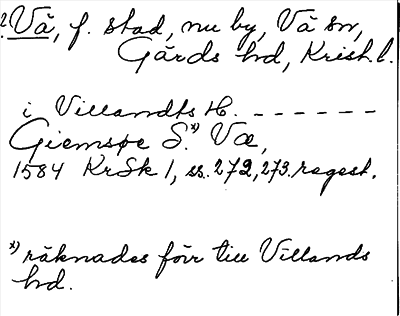 2. Vä, f. stad, nu by, Vä sn,
Gärds hd, Krist. l.
i Villandts H. - - - - - - -
Giemsøe S. *) Væ,
1584 KrSk 1, ss. 272, 273. regest.
*) räknades förr till Villands
hd.